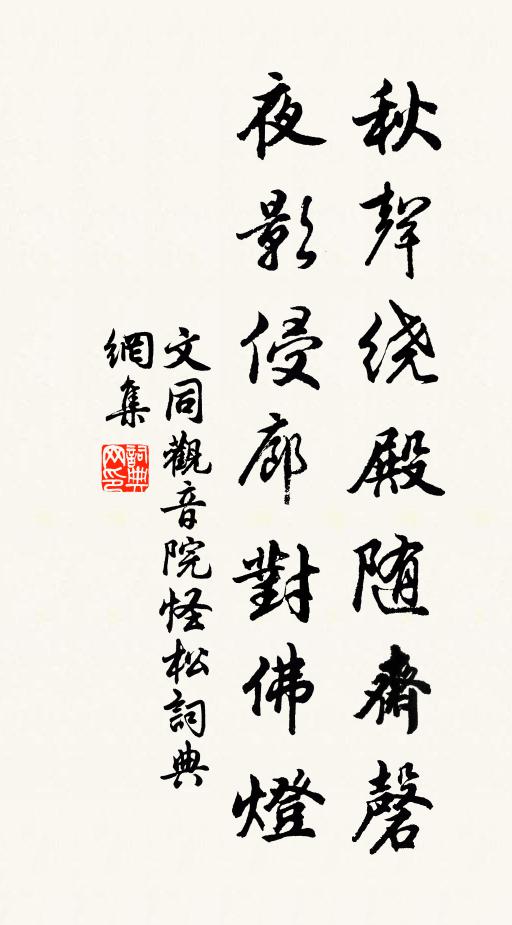 秋聲绕殿随齋磬
夜影侵廊對佛燈
文同觀音院怪松詞典
網集
詞典
网印